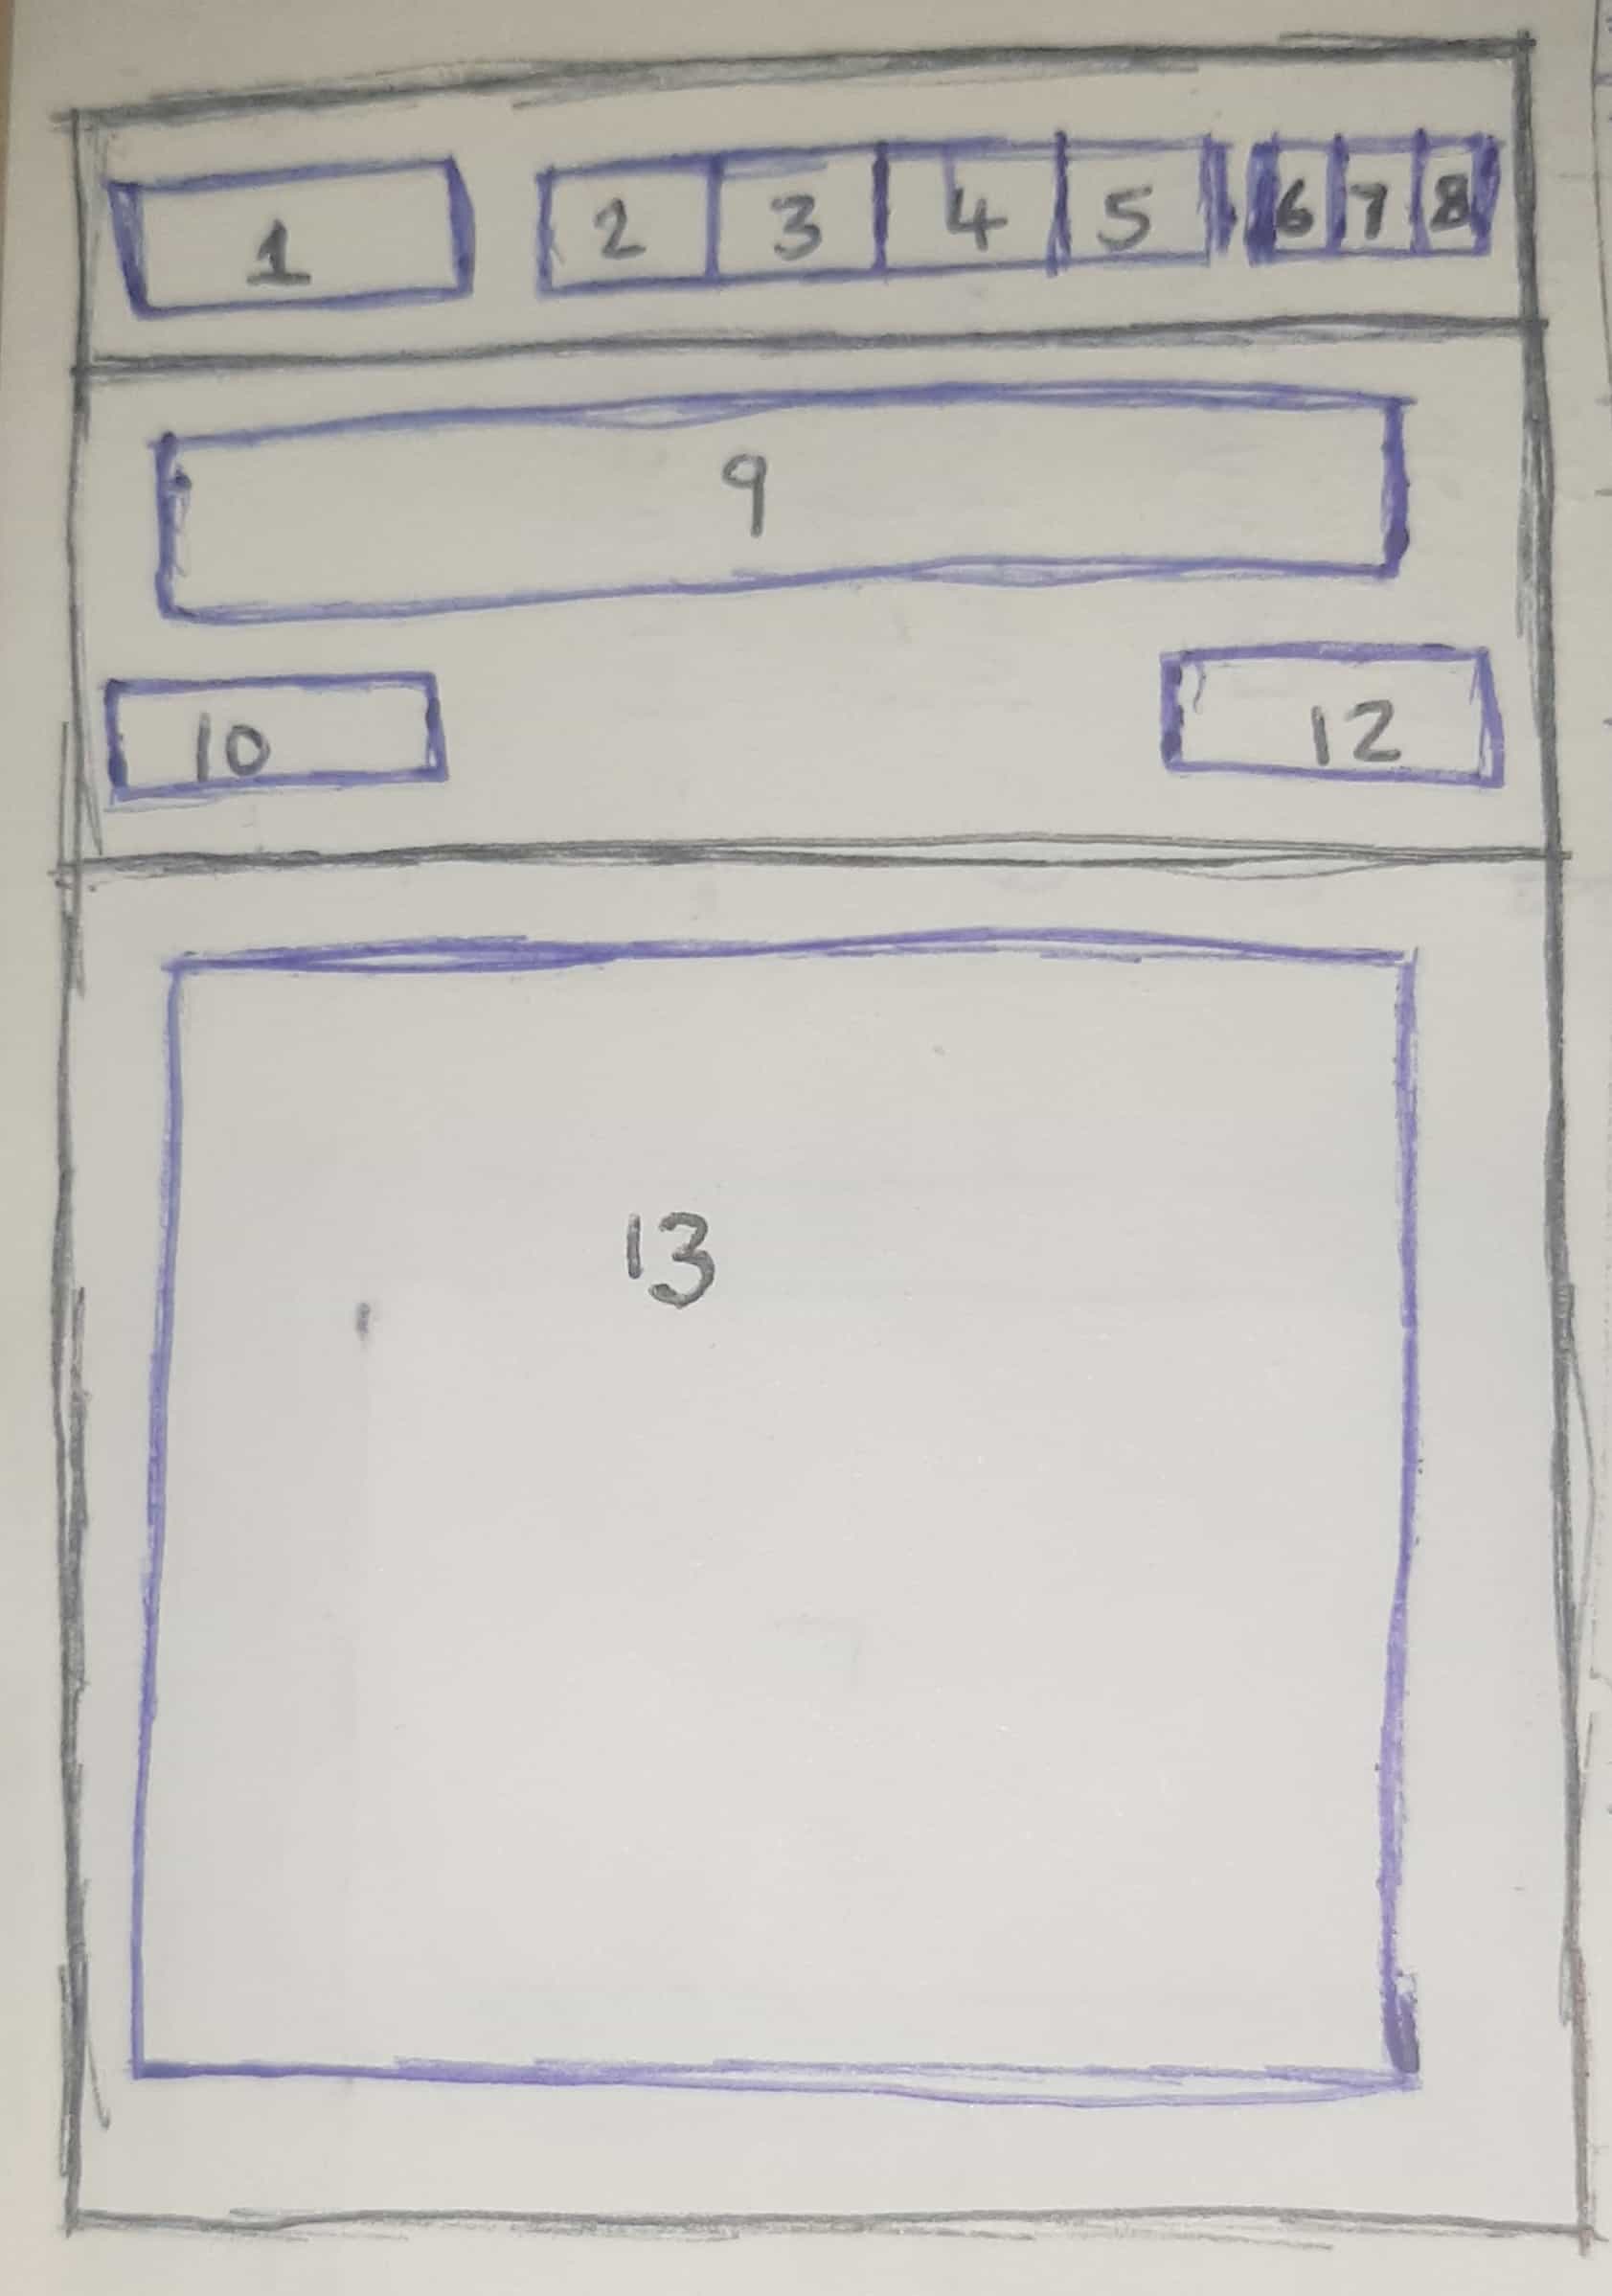 1 2 3 4 5 6 7 8
9
10 12
13